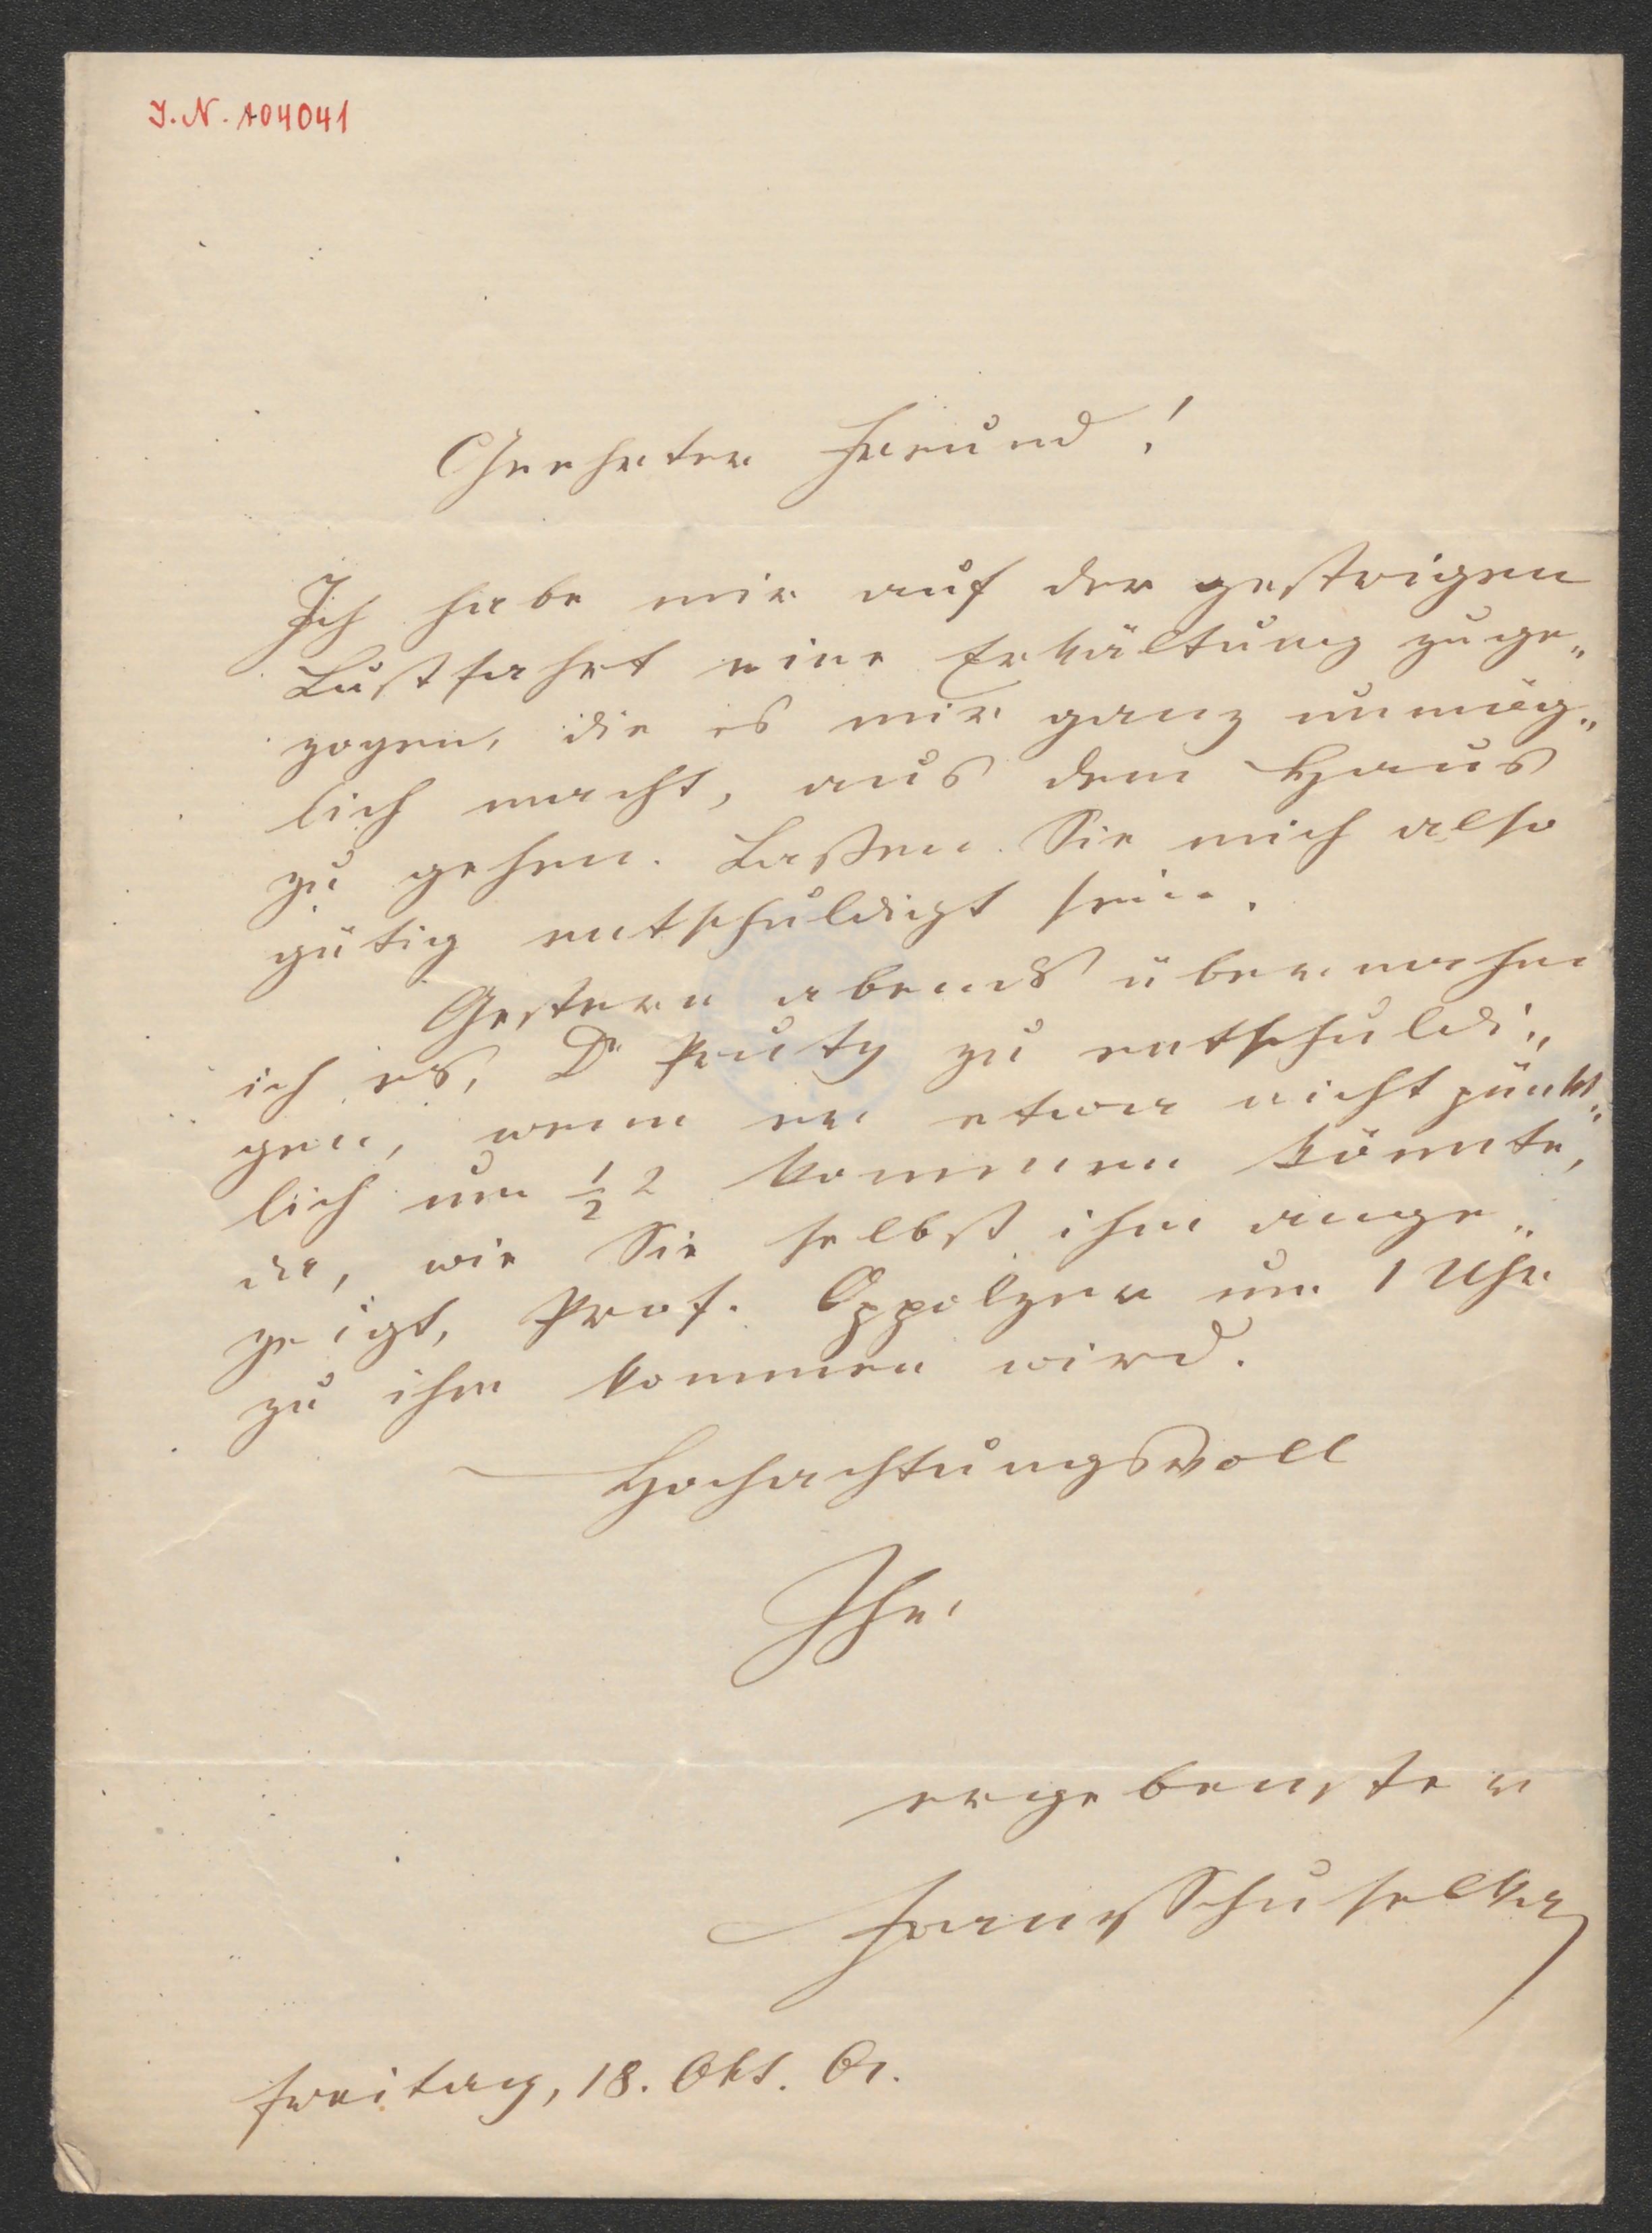 I.N. 104041
Geehrter Freund!
Ich habe mir auf der gestrigen
Lustfahrt eine Erkältung zuge„
zogen, die es mir ganz unmög„
lich macht, aus dem Haus
zu gehen. Laßen Sie mich also
gütig entschuldigt sein.
Gestern abends übernahm
ich es, Dr Prutz zu entschuldi„
gen, wenn er etwa nicht pünkt„
lich um ½ 2 kommen könnte,
da, wie Sie selbst ihm ange„
zeigt, Prof. Oppolzer um 1 Uhr
zu ihm kommen wird.
Hochachtungsvoll
Ihr
ergebenster
Franz Schuselka
Freitag, 18. Okt. 61.